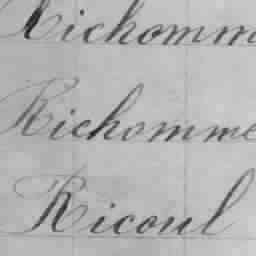 Richomm
Richomme
Ricoul